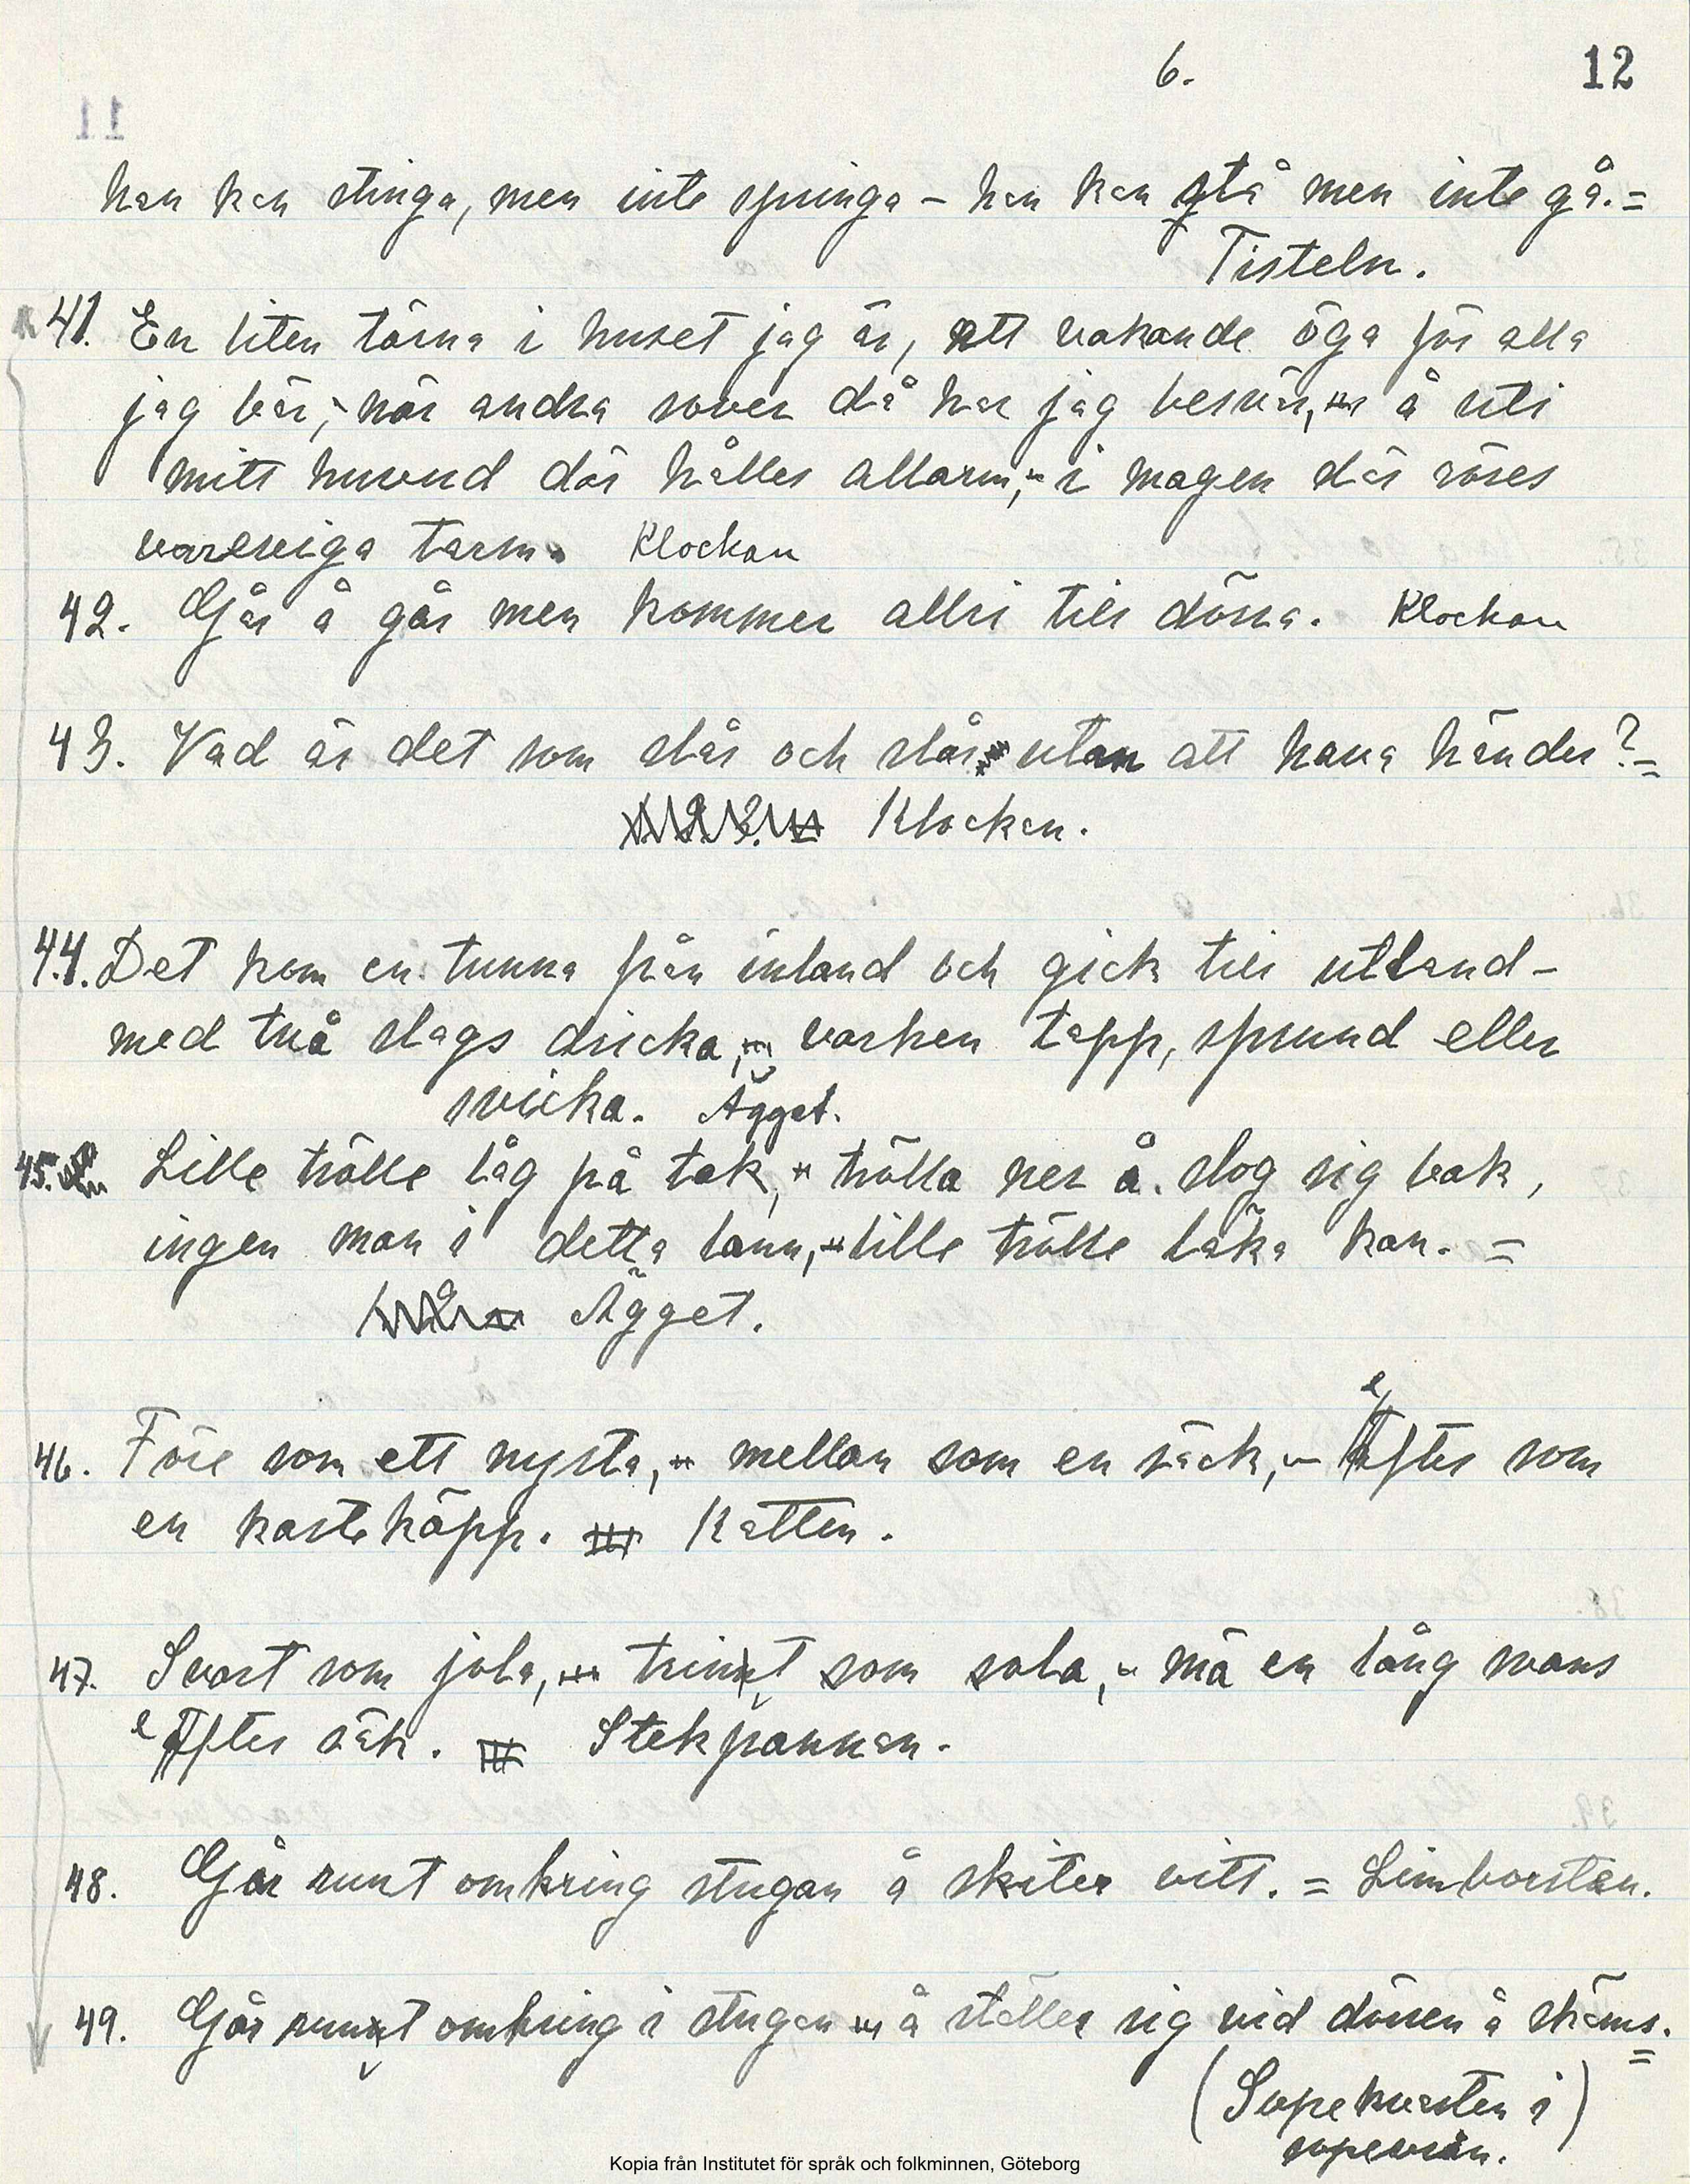 6.
12
11
han kan stinga, men inte springa – han kan stå men inte gå. =
Tisteln.
41. En liten tärna i huset jag är, ett vakande öga för alla
jag bär, - när andra sover då har jag besvär, å uti
mitt huvud där hålles allarm, - i magen där röres
vareviga tarm. Klockan
42. Går å går men kommer allri till dörra. Klockan
43. Vad är det som slår och slår utan att hava händer? =
Klockan.
44. Det kom en tunna från inland och gick till utland –
med två slags dricka, varken tapp, sprund eller
svicka. Ägget.
45. Lille trölle låg på tak, trölla ner å slog sig bak,
ingen man i detta lann, lille trölle läka kan. =
Ägget.
46. Före som ett nysta, mellan som en säck, – efter som
en kasteköpp. Katten.
47. Svart som jola, trint som sola, – mä en lång svans
efter säk. Stekpannan.
48. Går runt omkring stugan å skiter vitt. = Limborsten.
49. Går runt omkring i stugan å ställer sig vid dörren å skäms. =
(Sopekvasten i)
sopevrån.
Kopia från Institutet för språk och folkminnen, Göteborg